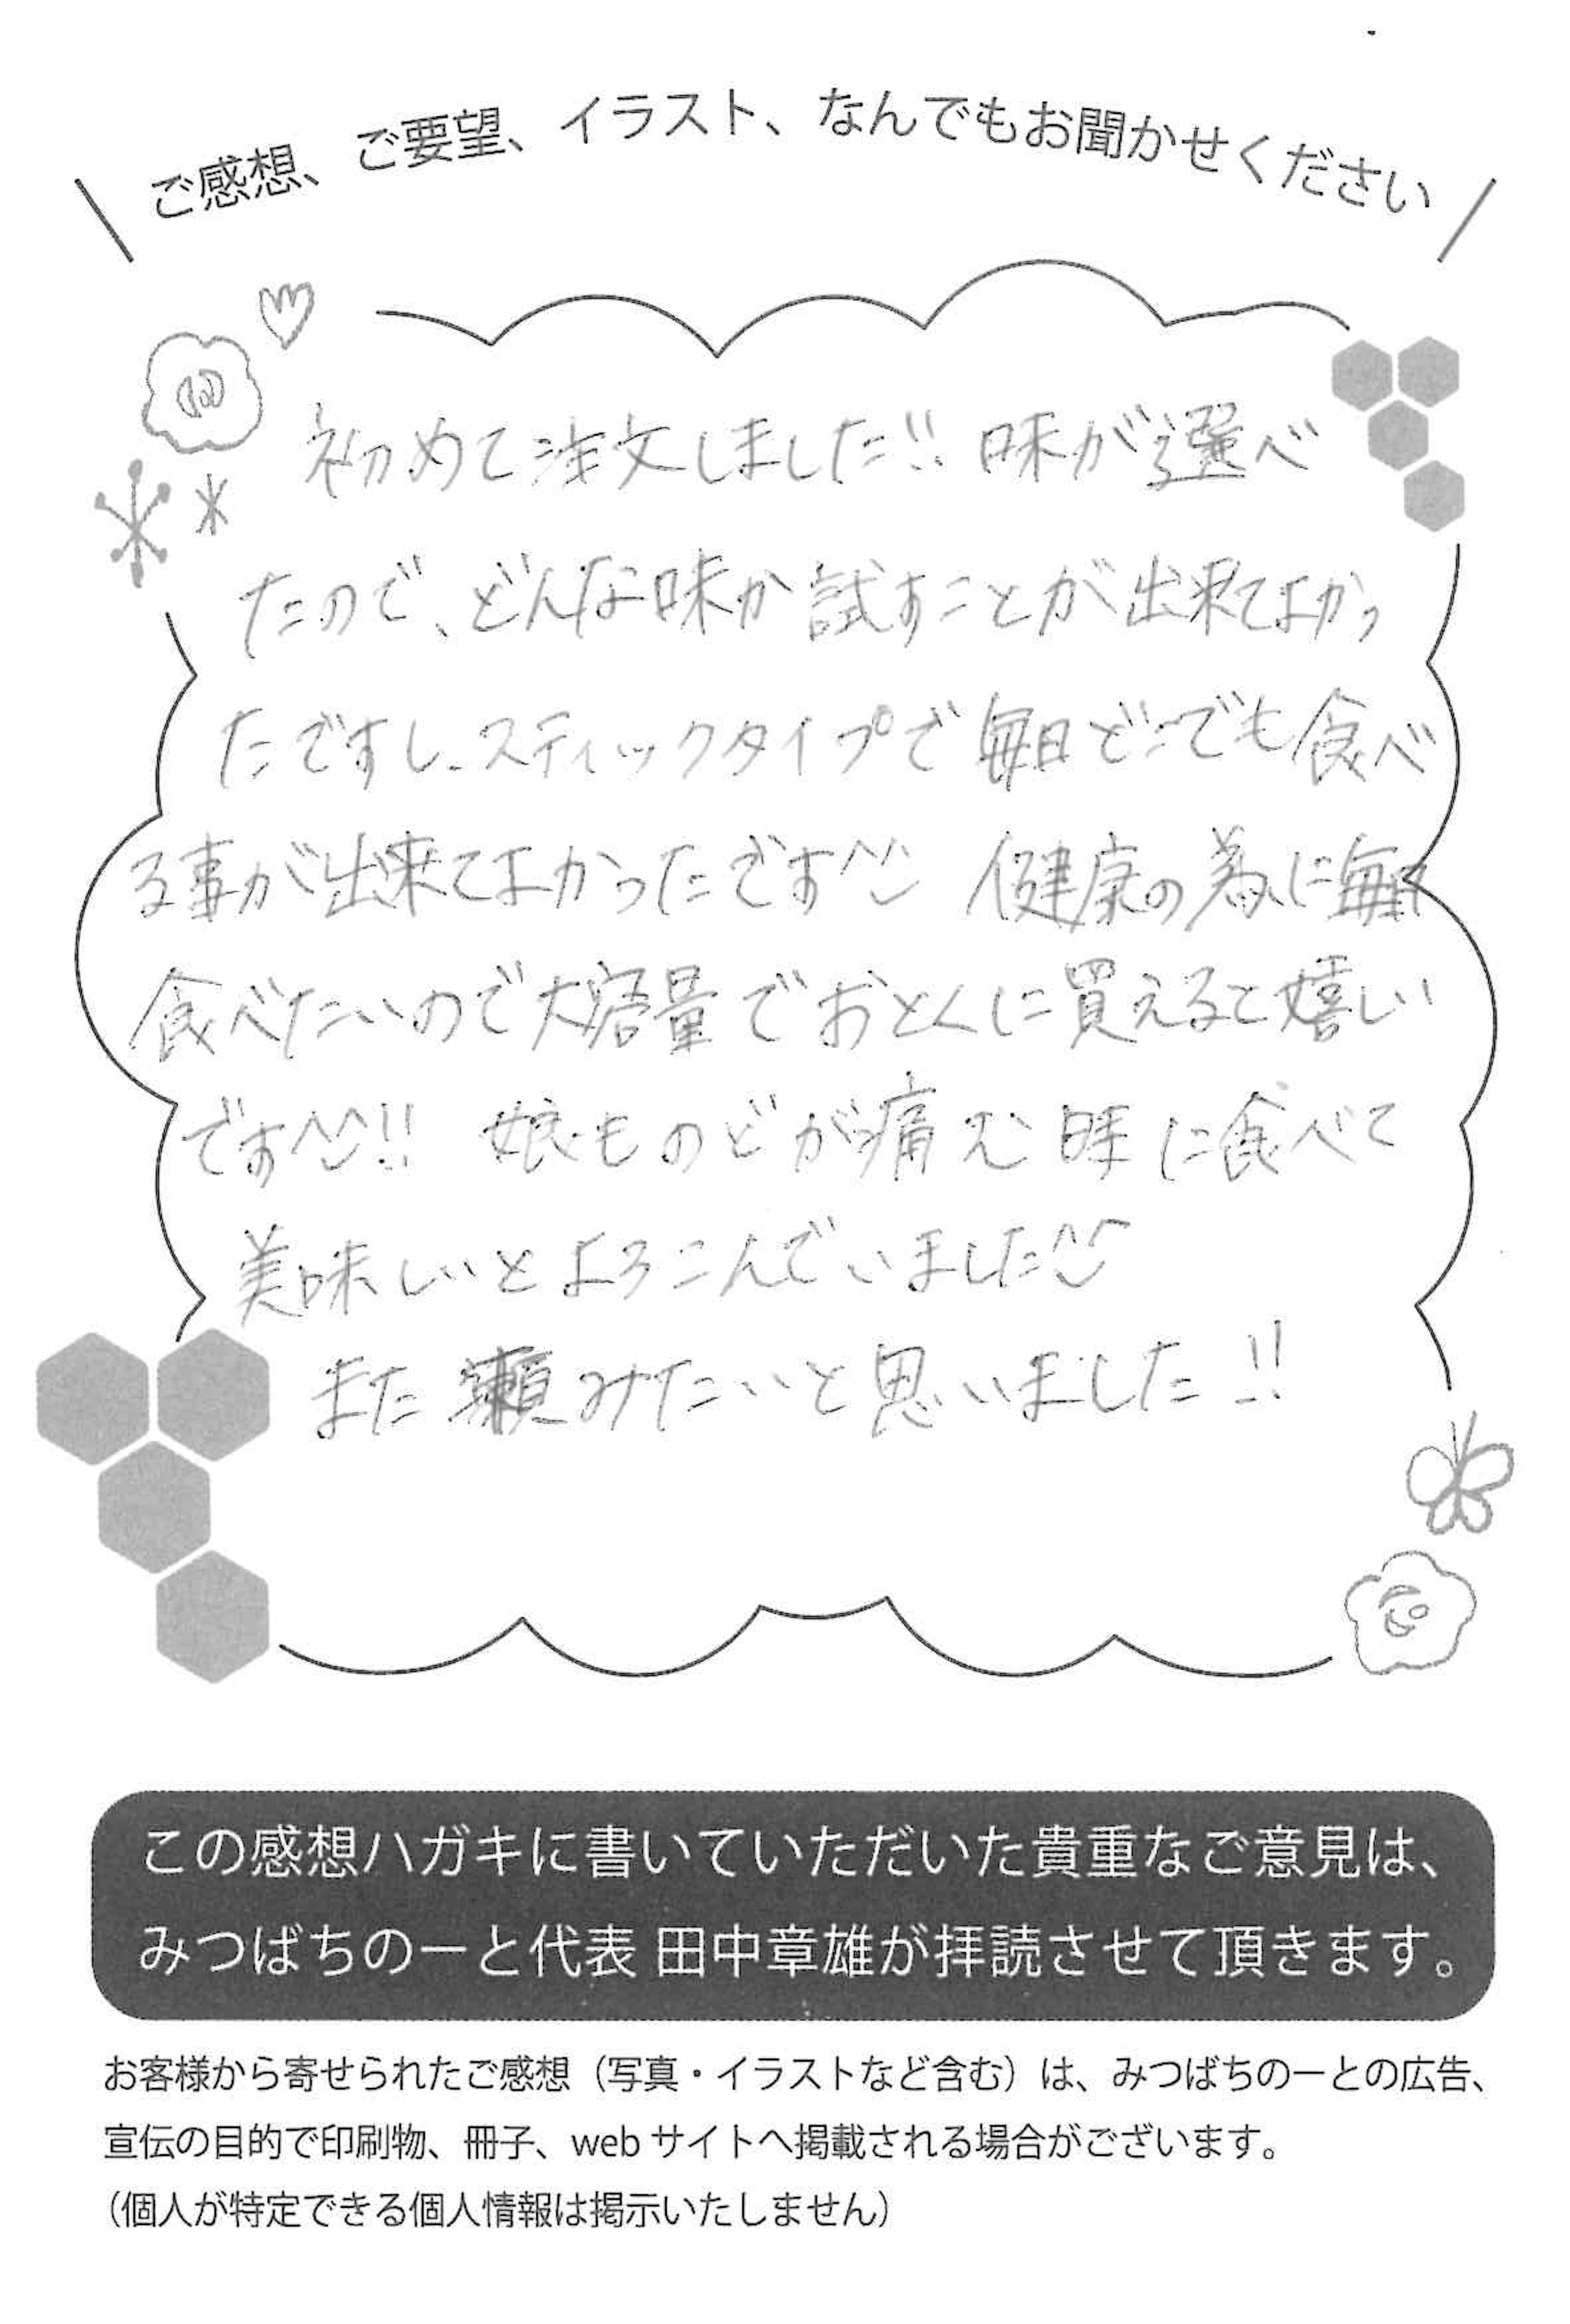 ご感想、ご要望、イラスト、なんでもお聞かせください
初めて注文しました!! 味が選べ
たので、どんな味か試すことが出来てよかっ
たですし、スティックタイプで毎日どこでも食べ
る事が出来てよかったです^^ 健康の為に毎日
食べたいので大容量でおとくに買えると嬉しい
です^^!! 娘ものどが痛む時に食べて
美味しいとよろこんでいました^^
また頼みたいと思いました!!
この感想ハガキに書いていただいた貴重なご意見は、
みつばちのーと代表 田中章雄が拝読させて頂きます。
お客様から寄せられたご感想（写真・イラストなど含む）は、みつばちのーとの広告、
宣伝の目的で印刷物、冊子、web サイトへ掲載される場合がございます。
（個人が特定できる個人情報は掲示いたしません）